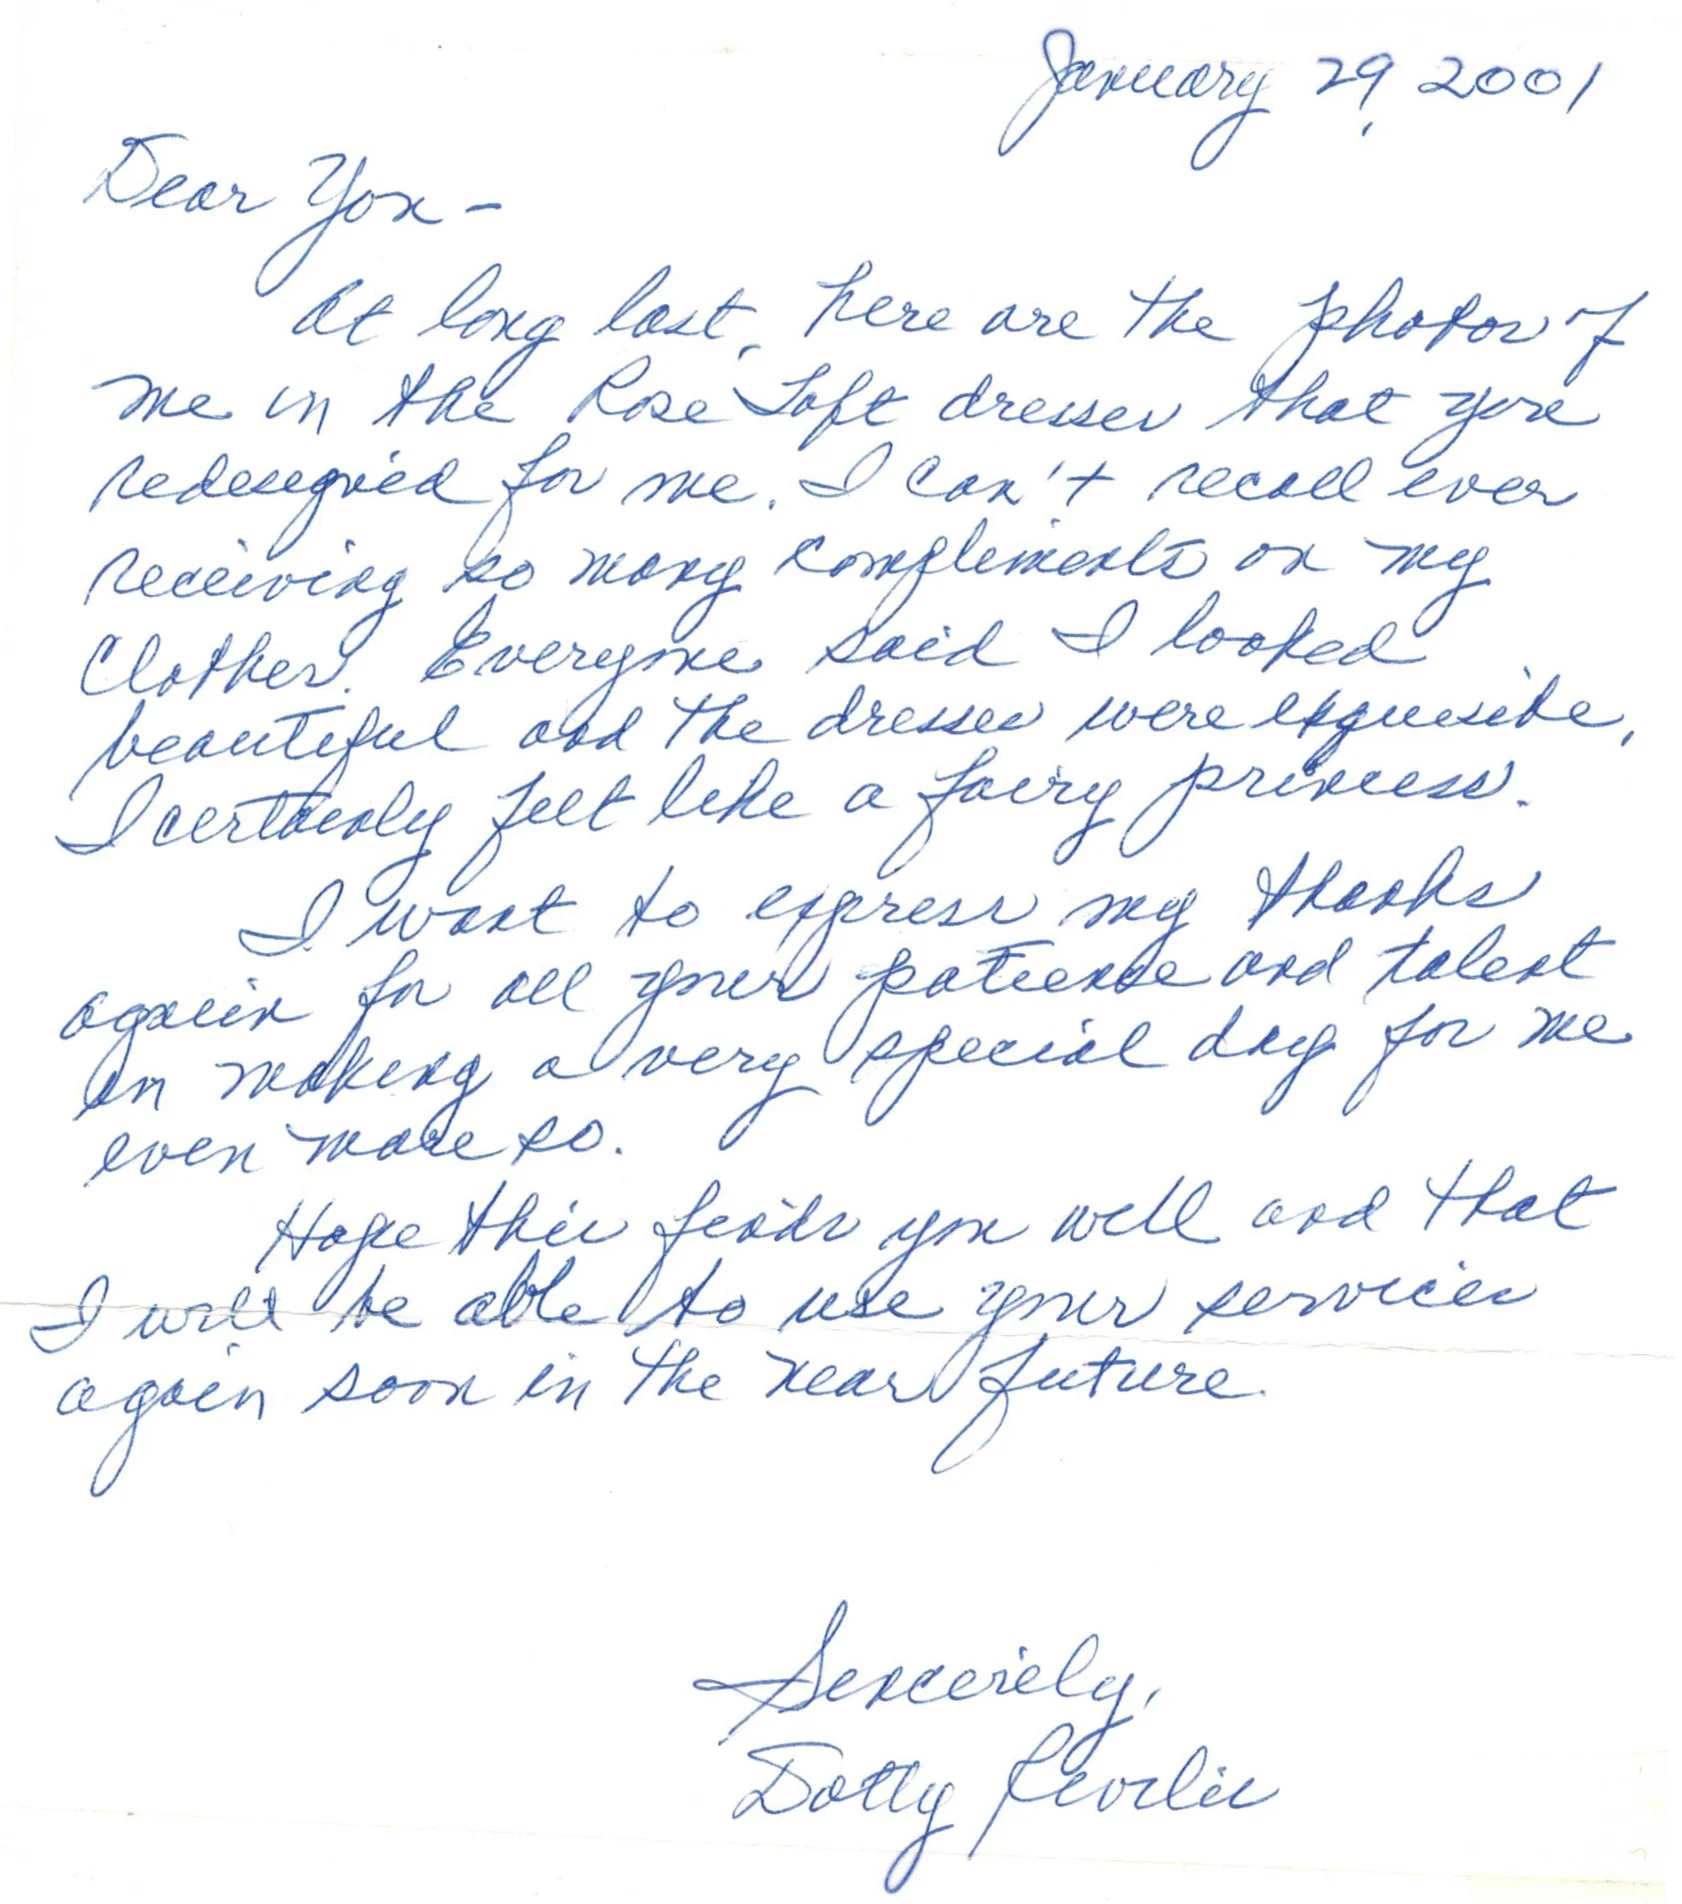 January 29, 2001
Dear You -
At long last, here are the photos of
me in the Rose Taft dresses that you
redesigned for me. I can't recall ever
receiving so many compliments on my
clothes. Everyone said I looked
beautiful and the dresses were exquisite,
I certainly felt like a fairy princess.
I want to express my thanks
again for all your patience and talent
in making a very special day for me
even more so.
Hope this finds you well and that
I will be able to use your services
again soon in the near future.
Sincerely,
Dotty